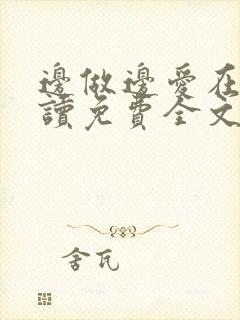 邊做邊愛在
讀免費全文
舍瓦